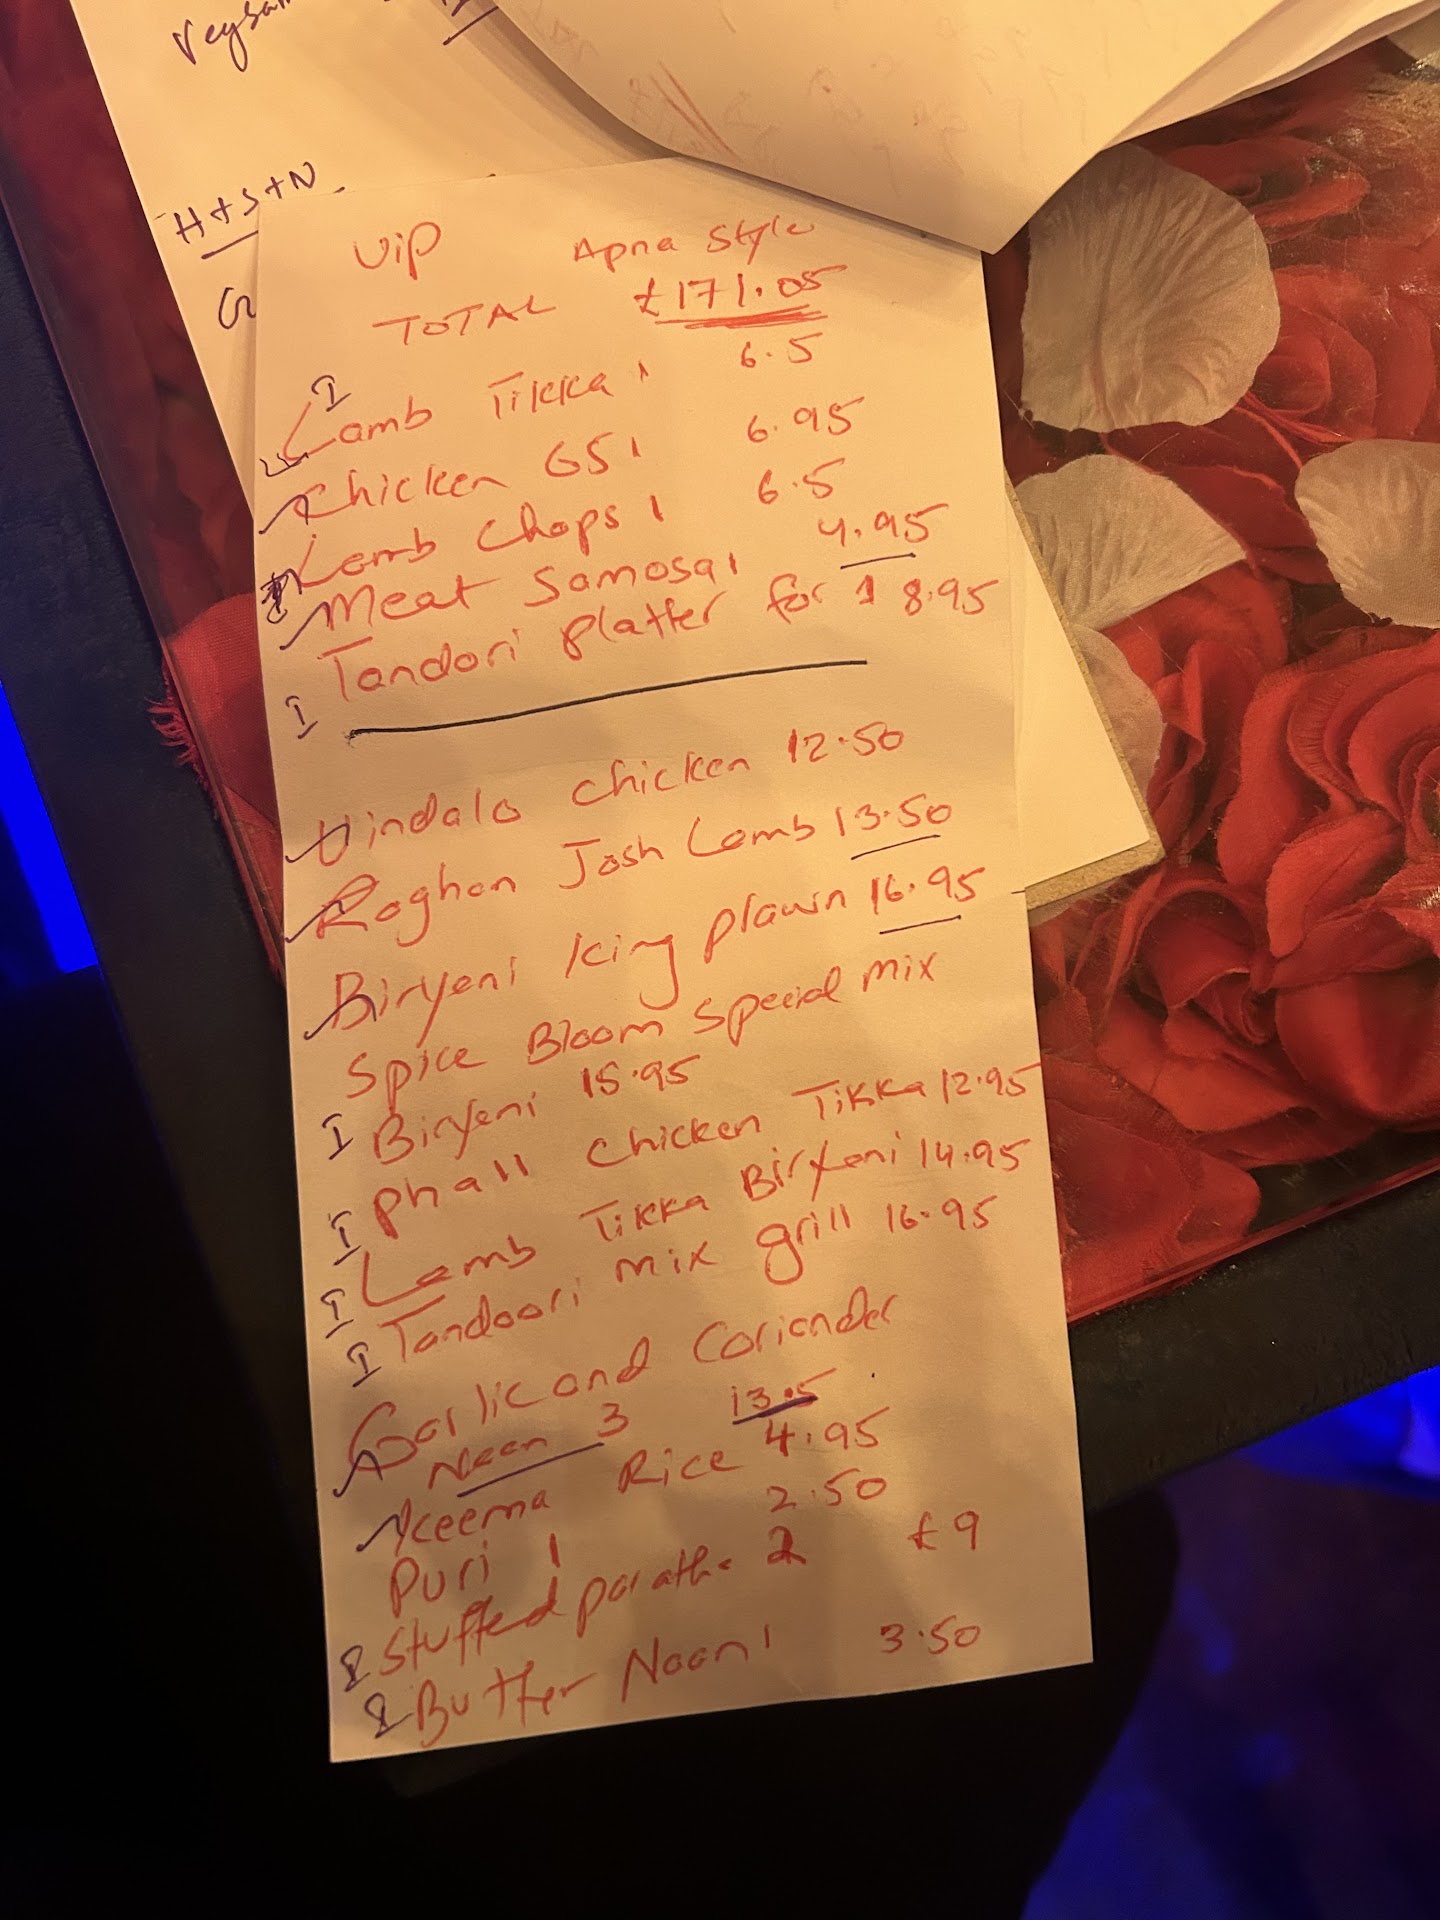 H+S+N
G
VIP Apna Style
TOTAL £171.05
I
Lamb Tikka 1 6.5
Chicken 65 1 6.95
Lamb Chops 1 6.5
Meat Samosa 1 4.95
I Tandori Platter for 1 8.95
Vindalo chicken 12.50
Roghan Josh Lamb 13.50
Biryani king prawn 16.95
Spice Bloom special mix
I Biryeni 15.95
I phall chicken Tikka 12.95
I Lamb Tikka Biryeni 14.95
I Tandoori mix grill 16.95
Garlic and Coriander
Naan 3 13.5
Keema Rice 4.95
Puri 1 2.50
I Stuffed paratha 2 £9
I Butter Naan 1 3.50